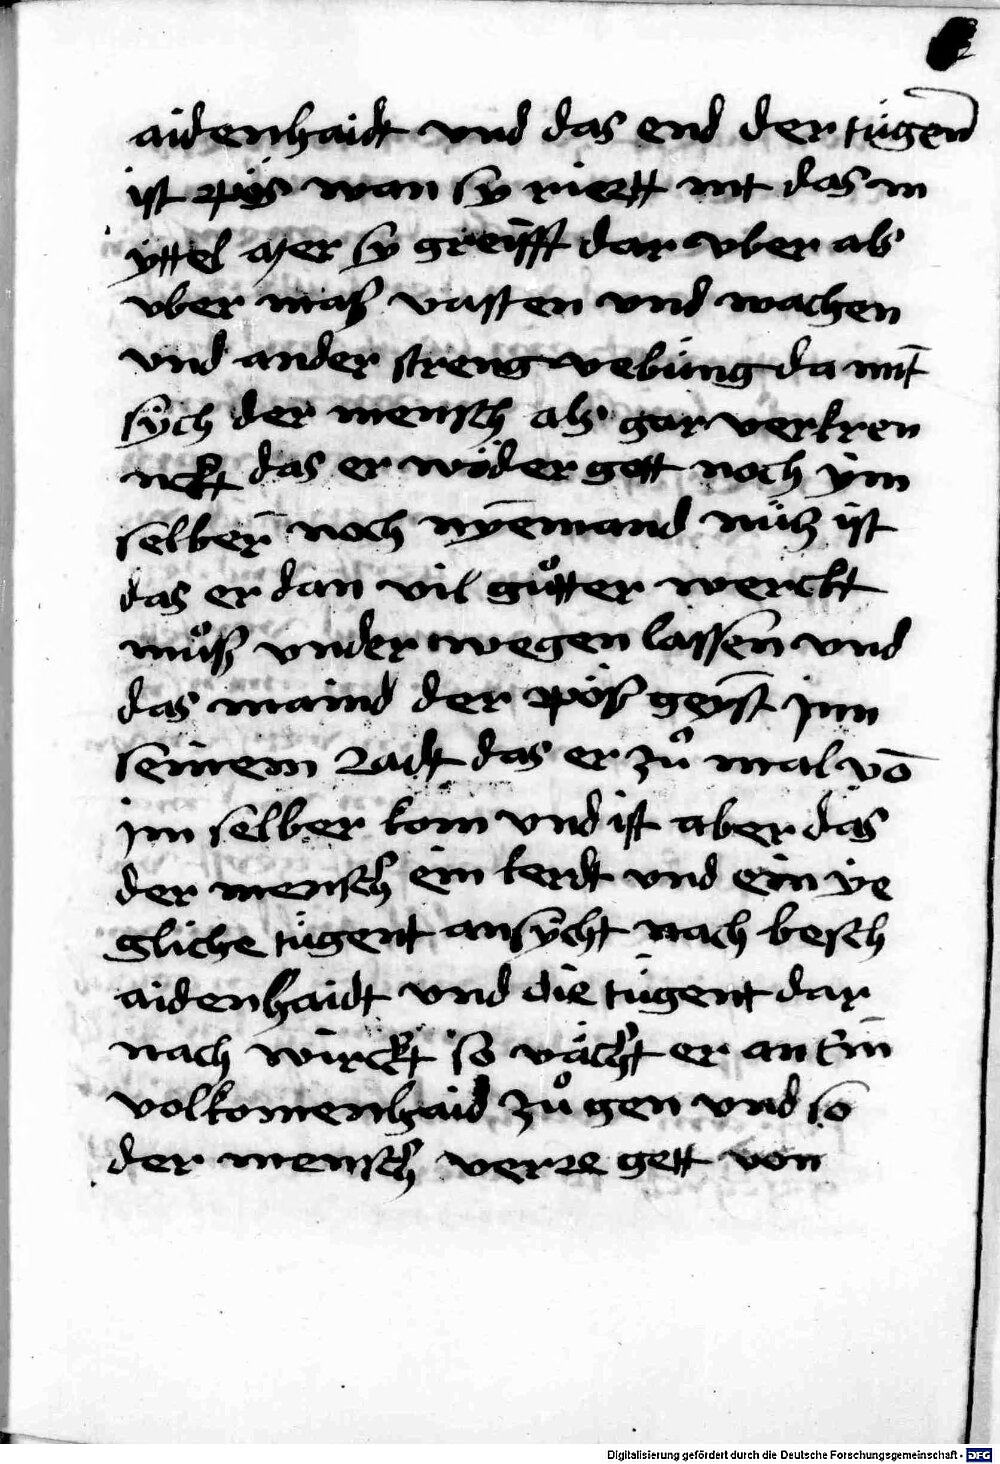 aidenhaidt vnd das end der tügen
ist pös wan sy riertt nit das m
yttel aꝫer sy greifft dar vber als
vber maß vasten vnd wachen
vnd ander streng vebüng da mit̄
sych der mensch als gar verkren
nckt das er wider gott noch ym
selber̄ noch nyemand nütz ist
das er dan vil gůtter werckt
můß vnder wegen lassen vnd
das maind der pöß geyst Jnn
seinem Radt das er zů mal vō
jm selber kom vnd ist aber das
der mensch ein kerdt vnd ein ye
gliche tügent ansycht nach besch
aidenhaidt vnd die tügent dar
nach wirckt so vächt er an Ein
volkomenhaid zů gen vnd so
der mensch verre gett von
Digitalisierung gefördert durch die Deutsche Forschungsgemeinschaft - DFG